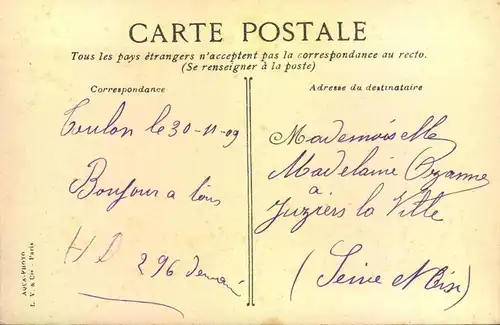 CARTE POSTALE
Tous les pays étrangers n'acceptent pas la correspondance au recto.
(Se renseigner à la poste)
Correspondance
Toulon le 30-11-09
Bonjour a tous
H D
296 demain
Adresse du destinataire
Mademoiselle
Madelaine Ozanne
a
Juziers la Ville
(Seine et Oise)
AQUA-PHOTO
L. V. & Cie - Paris